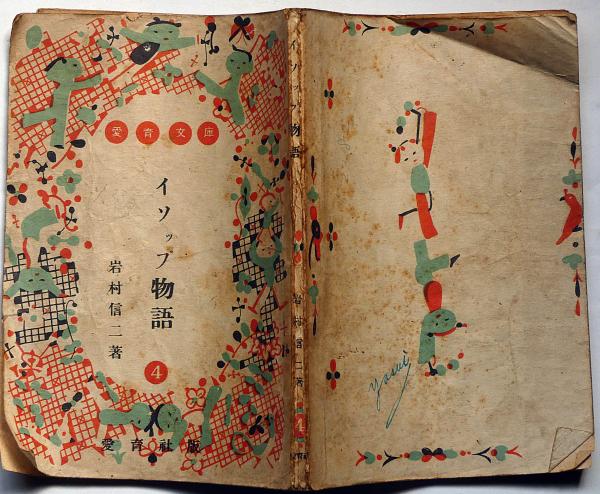 愛育文庫
イソップ物語
岩村信二著
4
愛育社版
イソップ物語
岩村信二著
4